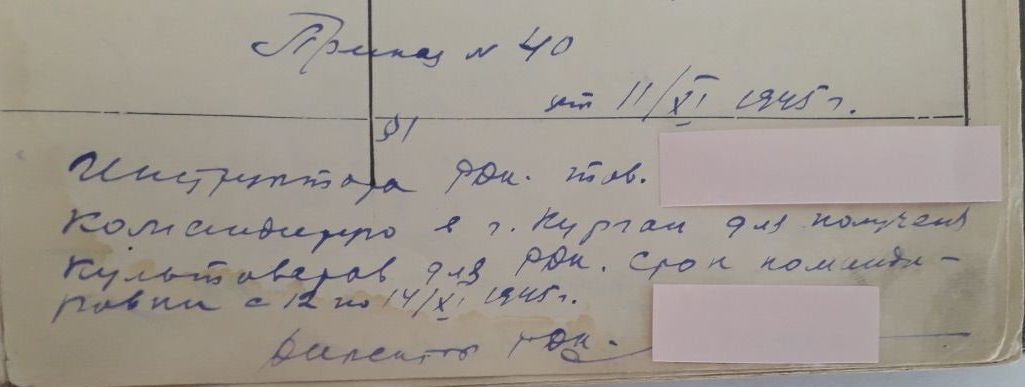 Приказ № 40
от 11/XI 1945 г.
§1
Инструктора РДК. тов.
Командирую в г. Курган для получения
культоваров для РДК. Срок командирования
ровки с 12 по 14/XI 1945 г.
Директор РДК.